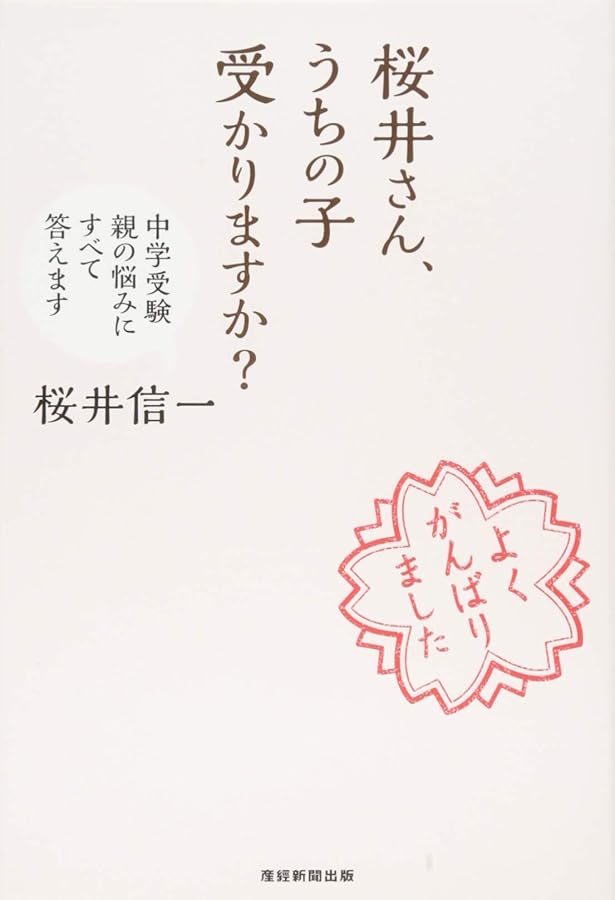 桜井さん、
うちの子
受かりますか？
中学受験
親の悩みに
すべて
答えます
桜井信一
よく
がんばり
ました
産經新聞出版